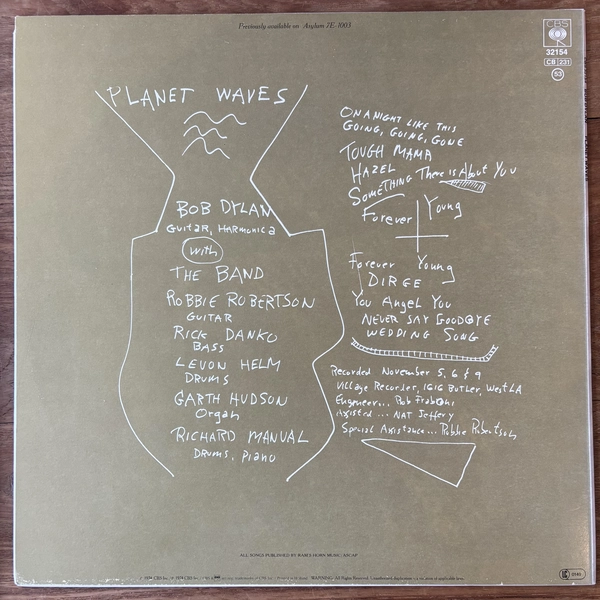 Previously available on Asylum 7E-1003
CBS
32154
CB 231
53
PLANET WAVES
BOB DYLAN
GUITAR, HARMONICA
with
THE BAND
ROBBIE ROBERTSON
GUITAR
RICK DANKO
BASS
LEVON HELM
DRUMS
GARTH HUDSON
Organ
RICHARD MANUAL
DRUMS, Piano
ON A NIGHT LIKE THIS
GOING, GOING, GONE
TOUGH MAMA
HAZEL
SOMETHING There is About You
Forever Young
Forever Young
DIRGE
You Angel You
NEVER SAY GOODBYE
WEDDING SONG
Recorded November 5, 6 & 9
Village Recorder, 1616 BUTLER, West LA
Engineer... Rob Fraboni
Assisted ... NAT Jeffery
Special Assistance... Robbie Robertson
ALL SONGS PUBLISHED BY RAM'S HORN MUSIC ASCAP